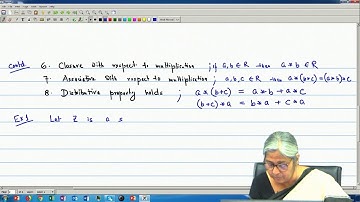 contd. 6. Closure with respect to multiplication ; if a, b ∈ R then a * b ∈ R
7. Associative with respect to multiplication ; a, b, c ∈ R then a * (b * c) = (a * b) * c
8. Distributive property holds ; a * (b + c) = a * b + a * c
(b + c) * a = b * a + c * a
Ex 1 Let Z is a s